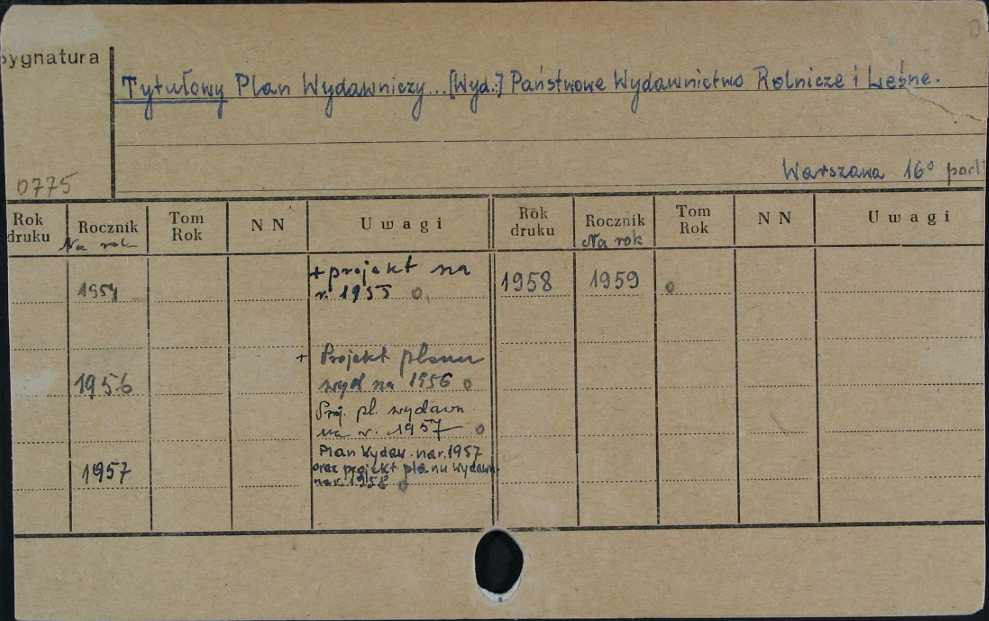 Sygnatura
Tytułowy Plan Wydawniczy... [Wyd.:] Państwowe Wydawnictwo Rolnicze i Leśne.
Warszawa 16° pod
0775
Rok druku Rocznik Tom Rok NN Uwagi Rok druku Rocznik Tom Rok NN Uwagi
Na rok Na rok
1954 + projekt na 1958 1959 o
r. 1955 o
+ Projekt planu
1956 wyd na 1956 o
Proj. pl. wydawn.
na r. 1957 o
Plan Wydaw. na r. 1957
1957 oraz projekt planu wydawn.
na r. 1958 o